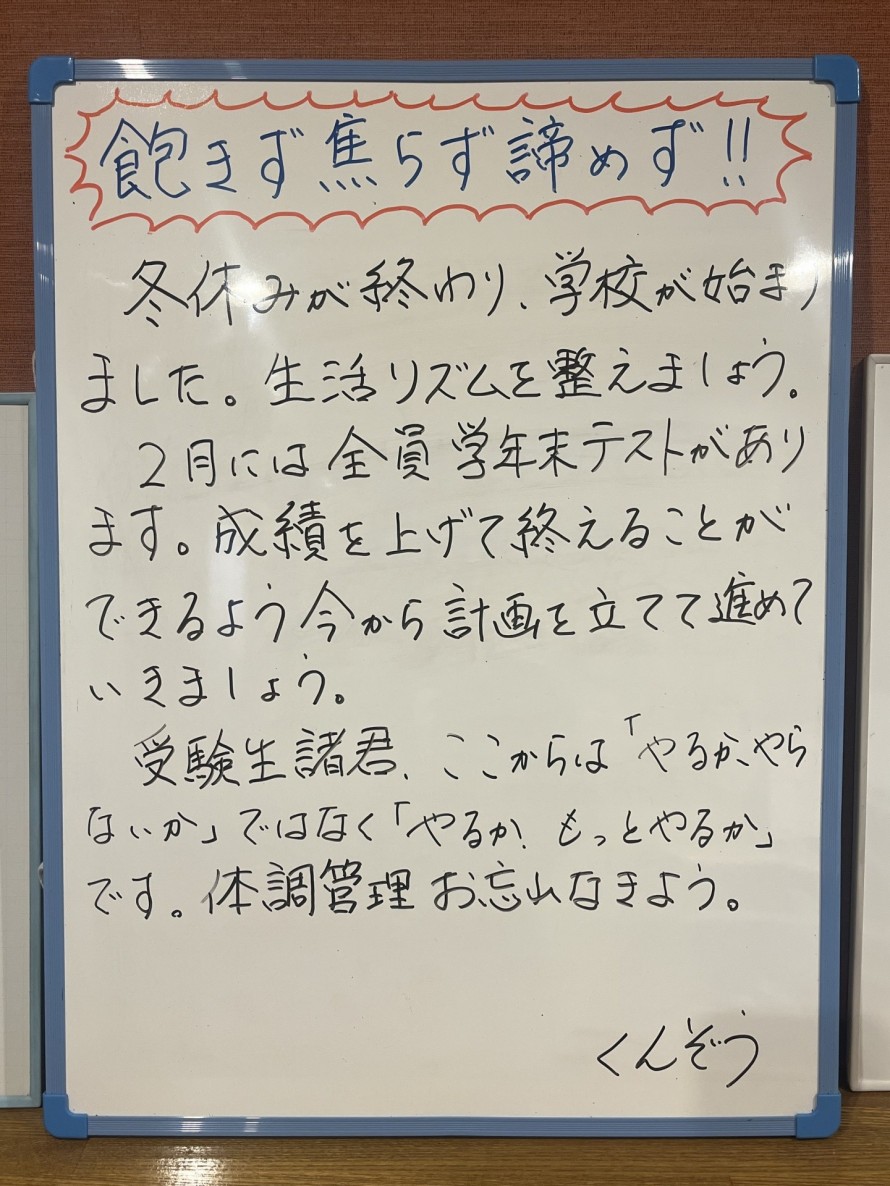 飽きず焦らず諦めず!!
冬休みが終わり、学校が始まり
ました。生活リズムを整えましょう。
2月には全員学年末テストがあり
ます。成績を上げて終えることが
できるよう今から計画を立てて進めて
いきましょう。
受験生諸君、ここからは「やるか、やら
ないか」ではなく「やるか、もっとやるか」
です。体調管理お忘れなきよう。
くんぞう